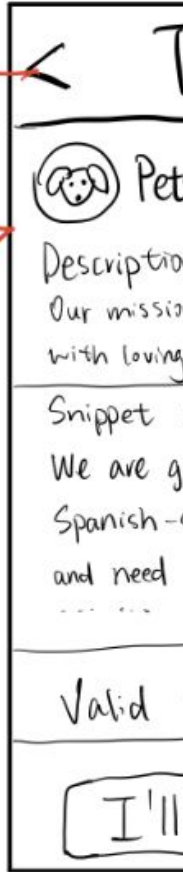 T
Pet
Descriptio
Our missio
with loving
Snippet
We are g
Spanish-
and need
Valid
I'll